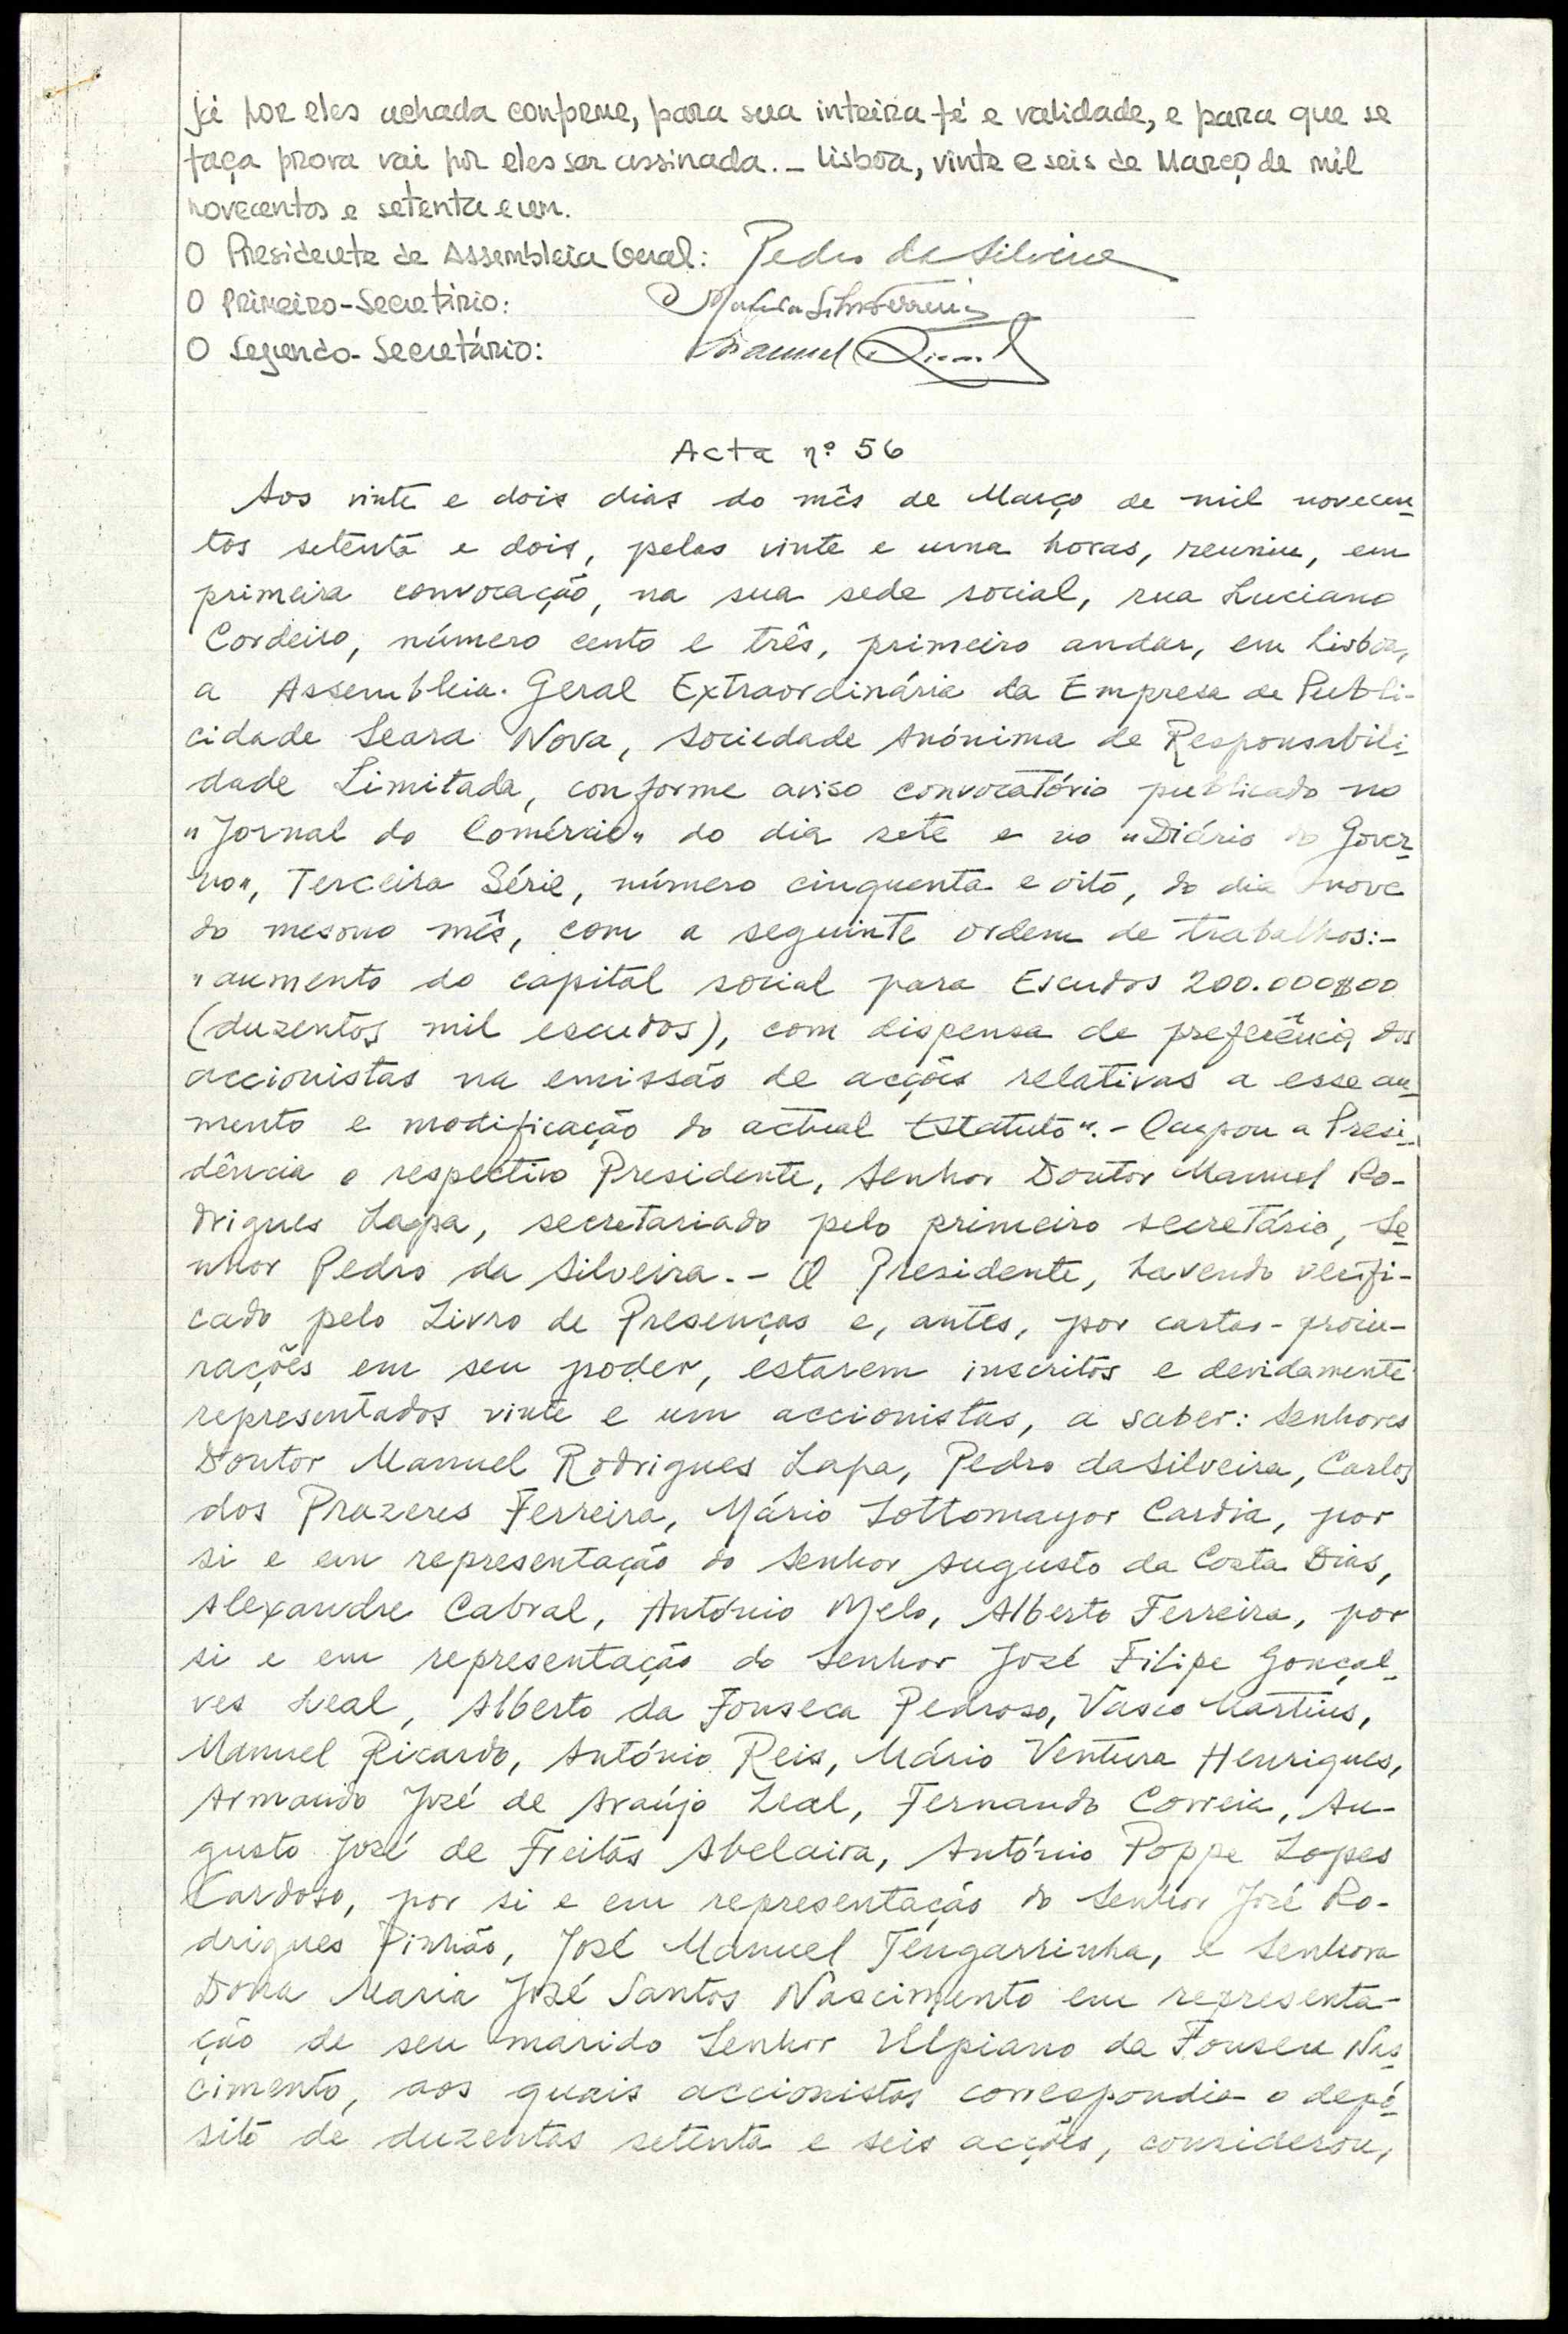 já por eles achada conforme, para sua inteira fé e validade, e para que se
faça prova vai por eles ser assinada. - Lisboa, vinte e seis de Março de mil
novecentos e setenta e um.
O Presidente de Assembleia Geral: Pedro da Silveira
O Primeiro-Secretário:
O Segundo-Secretário: Manuel Ricardo
Acta nº 56
Aos vinte e dois dias do mês de Março de mil novecen-
tos setenta e dois, pelas vinte e uma horas, reuniu, em
primeira convocação, na sua sede social, rua Luciano
Cordeiro, número cento e três, primeiro andar, em Lisboa,
a Assembleia Geral Extraordinária da Empresa de Publi-
cidade Seara Nova, Sociedade Anónima de Responsabili-
dade Limitada, conforme aviso convocatório publicado no
"Jornal do Comércio" do dia sete e no "Diário do Gover-
no", Terceira Série, número cinquenta e oito, do dia nove
do mesmo mês, com a seguinte ordem de trabalhos:-
"aumento do capital social para Escudos 200.000$00
(duzentos mil escudos), com dispensa de preferência dos
accionistas na emissão de acções relativas a esse au-
mento e modificação do actual Estatuto". - Ocupou a Presi-
dência o respectivo Presidente, Senhor Doutor Manuel Ro-
drigues Lapa, secretariado pelo primeiro secretário, Se-
nhor Pedro da Silveira. - O Presidente, havendo verifi-
cado pelo Livro de Presenças e, antes, por cartas-procu-
rações em seu poder, estarem inscritos e devidamente
representados vinte e um accionistas, a saber: Senhores
Doutor Manuel Rodrigues Lapa, Pedro da Silveira, Carlos
dos Prazeres Ferreira, Mário Sottomayor Cardia, por
si e em representação do Senhor Augusto da Costa Dias,
Alexandre Cabral, António Melo, Alberto Ferreira, por
si e em representação do Senhor José Filipe Gonçal-
ves Leal, Alberto da Fonseca Pedroso, Vasco Martins,
Manuel Ricardo, António Reis, Mário Ventura Henriques,
Armando José de Araújo Leal, Fernando Correia, Au-
gusto José de Freitas Abelaira, António Poppe Lopes
Cardoso, por si e em representação do Senhor José Ro-
drigues Pinhão, José Manuel Tengarrinha, e Senhora
Dona Maria José Santos Nascimento em representa-
ção de seu marido Senhor Ulpiano da Fonseca Nas-
cimento, aos quais accionistas correspondia o depó-
sito de duzentas setenta e seis acções, considerou,